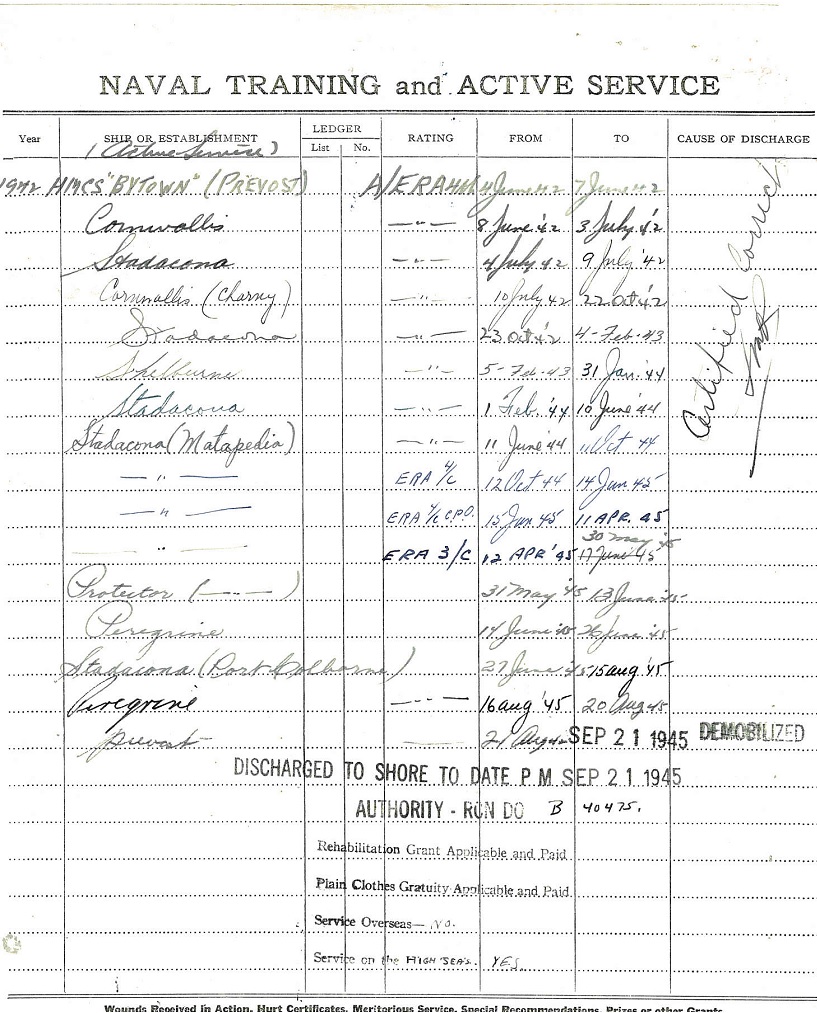 NAVAL TRAINING and ACTIVE SERVICE
LEDGER
Year SHIP OR ESTABLISHMENT List No. RATING FROM TO CAUSE OF DISCHARGE
(Active Service)
1942 HMCS "BYTOWN" (PREVOST) A/ERA4 4 June 42 7 June 42
Cornwallis —"— 8 June '42 3 July '42
Stadacona —"— 4 July 42 9 July '42
Cornwallis (Charny) —"— 10 July 42 22 Oct '42
Stadacona —"— 23 Oct 42 4-Feb-43
Shelburne —"— 5-Feb-43 31 Jan. '44
Stadacona —"— 1 Feb. '44 10 June '44
Stadacona (Matapedia) —"— 11 June '44 11 Oct 44
—"— ERA 4/C 12 Oct 44 14 Jan 45
—"— ERA 4/C C.P.O. 15 Jan 45 11 APR. 45
30 May '45
—"— ERA 3/C 12 APR '45 17 June 45
Protector (—"—) 31 May '45 13 June '45
Peregrine 14 June 45 26 June '45
Stadacona (Port Colborne) 27 June '45 15 Aug '45
Peregrine —"— 16 Aug '45 20 Aug 45
Prevost — 21 Aug 45 SEP 21 1945 DEMOBILIZED
Certified Correct
DISCHARGED TO SHORE TO DATE P M SEP 21 1945
AUTHORITY - RCN DO B 40475.
Rehabilitation Grant Applicable and Paid
Plain Clothes Gratuity Applicable and Paid
Service Overseas— NO.
Service on the HIGH SEAS. YES.
Wounds Received in Action, Hurt Certificates, Meritorious Service, Special Recommendations, Prizes or other Grants